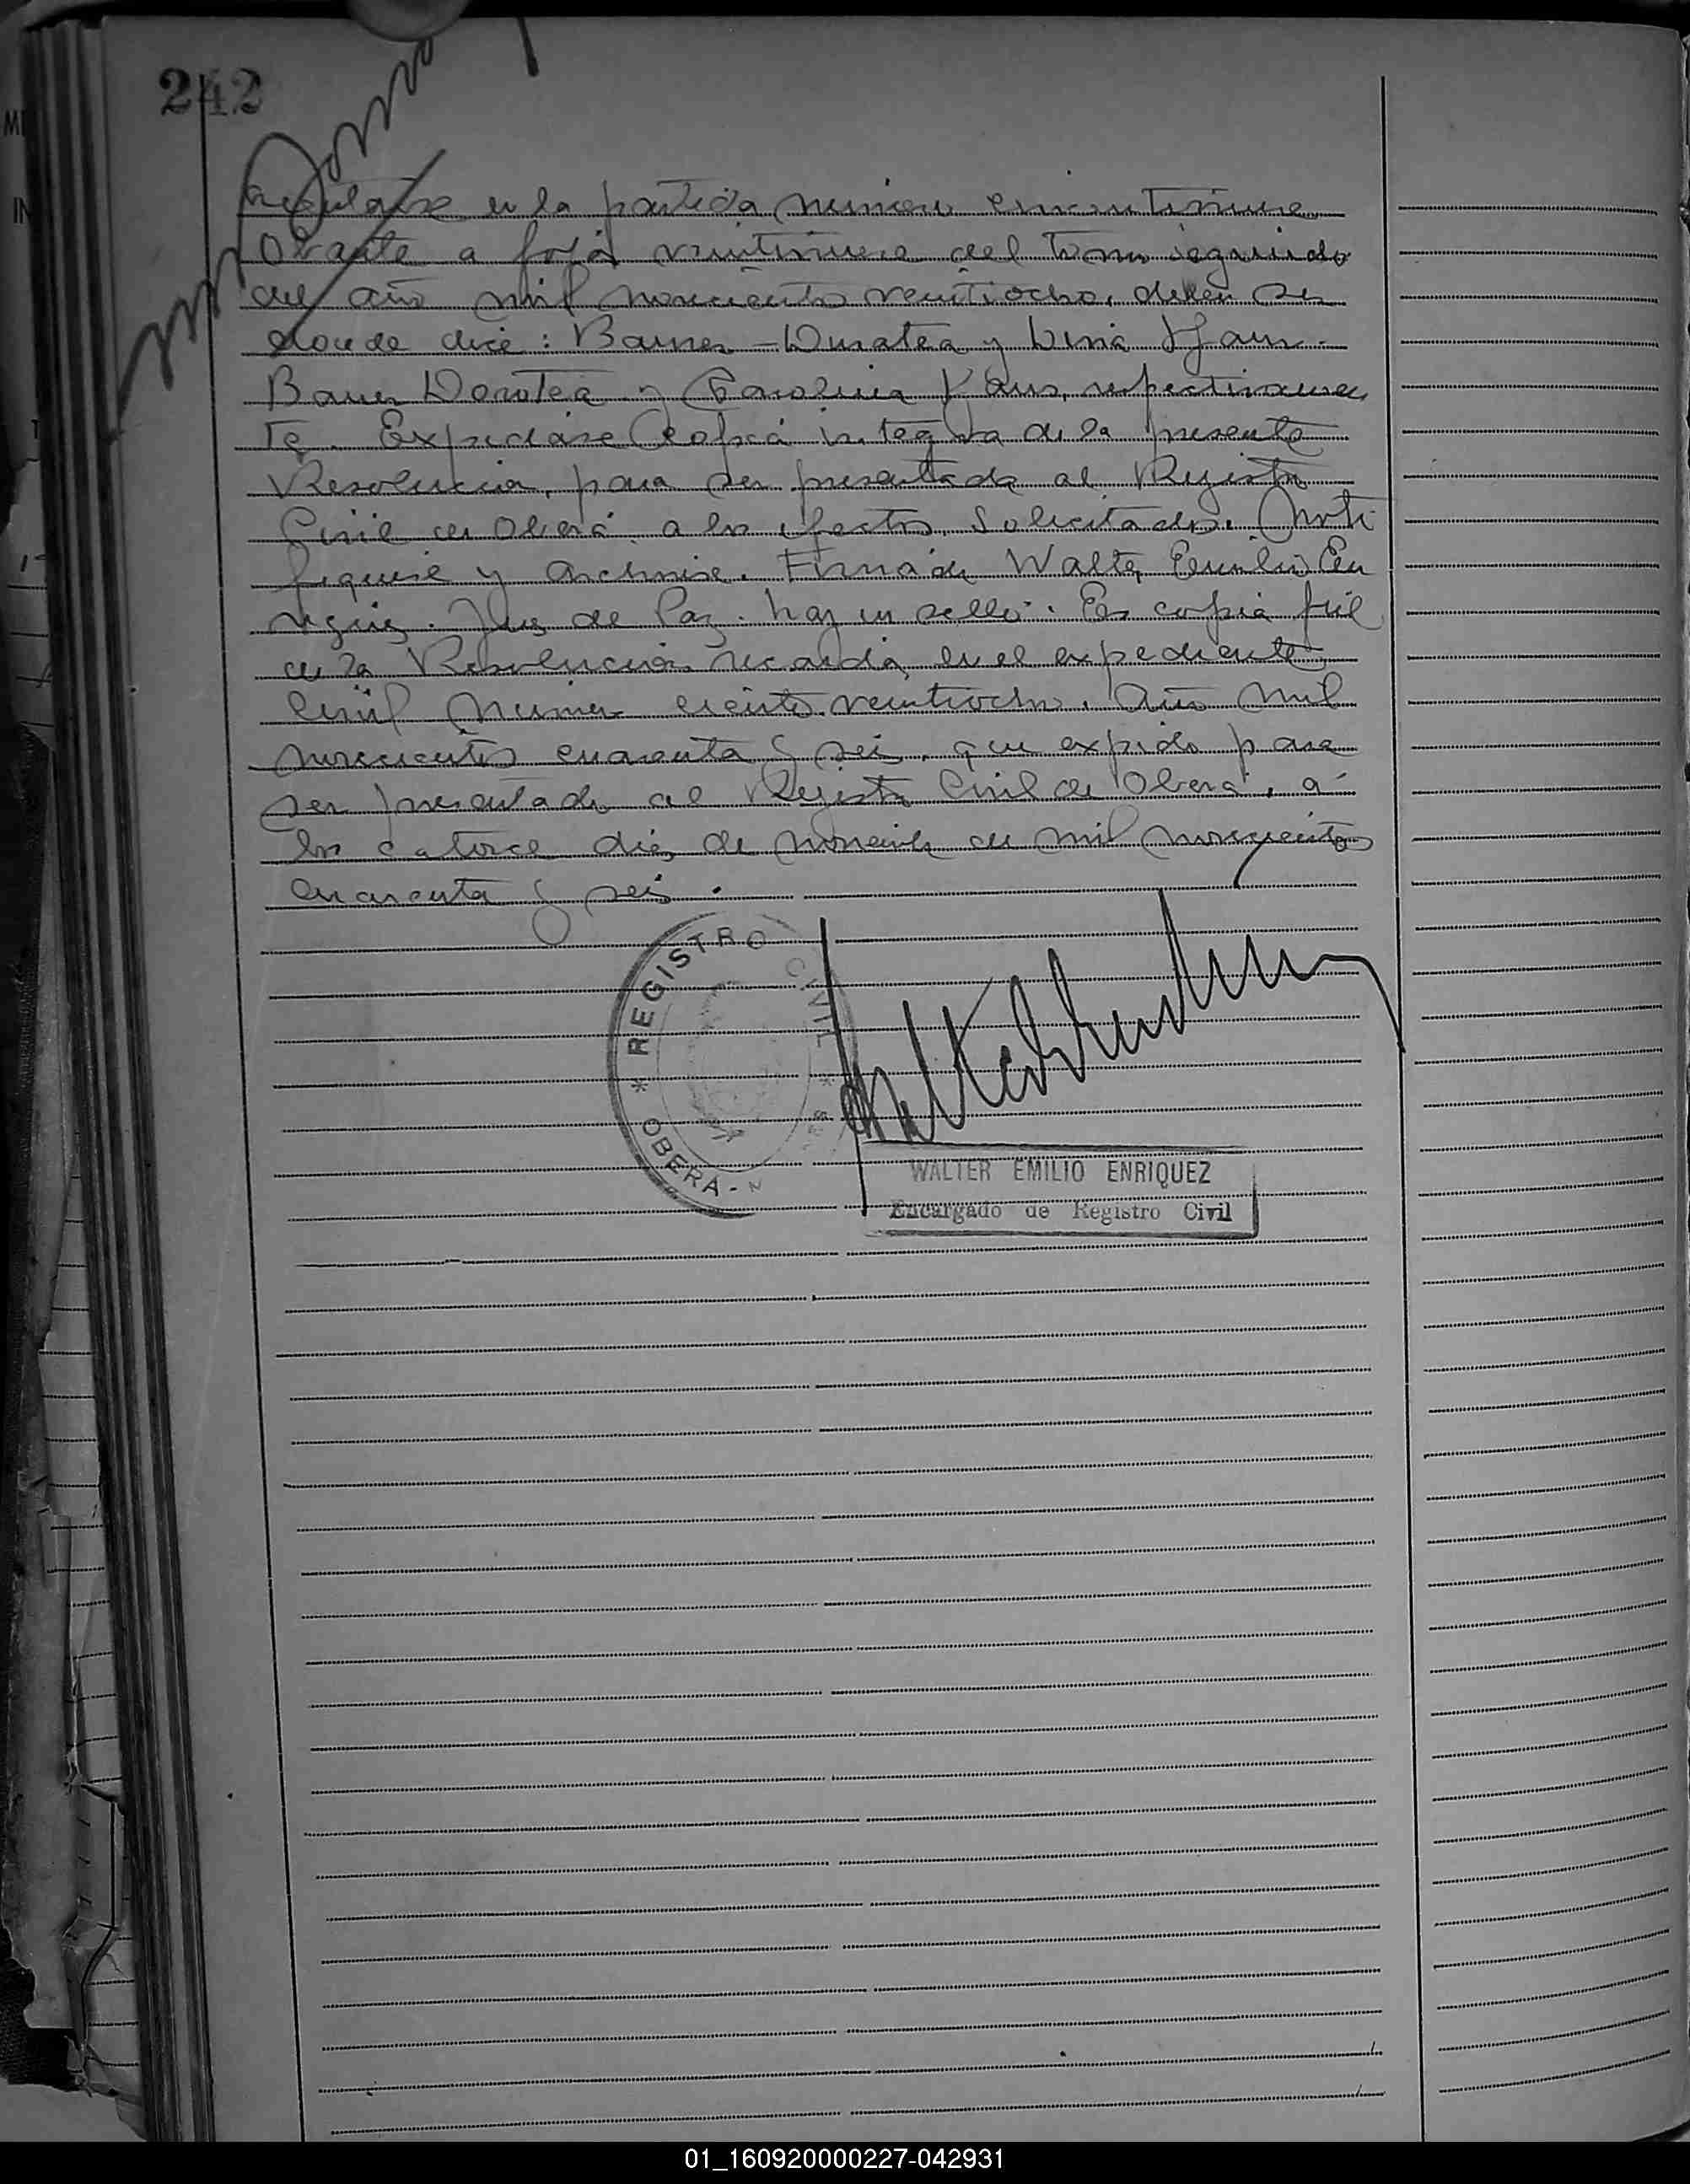 242
en la partida número cincuentinueve
Obrante a foja veintinueve del tomo segundo
del año mil novecientos veintiocho, deben ser
donde dice: Bauner - Duratea y Lina Haus -
Bauer Dorotea y Carolina Kaus, respectivamen
te. Expidase copia integra de la presente
Resolución, para ser presentada al Registro
Civil de Oberá, a los efectos solicitados. Noti
fiquese y archivese. Firmado Walter Emilio En
riquez. Juez de Paz. hay un sello. Es copia fiel
de la Resolución recaida en el expediente
Civil Número ciento veintiocho, Año mil
novecientos cuarenta y seis, que expido para
ser presentado al Registro Civil de Oberá, a
los catorce dias de noviembre de mil novecientos
cuarenta y seis.
* REGISTRO CIVIL *
OBERA -
WALTER EMILIO ENRIQUEZ
Encargado de Registro Civil
01_160920000227-042931